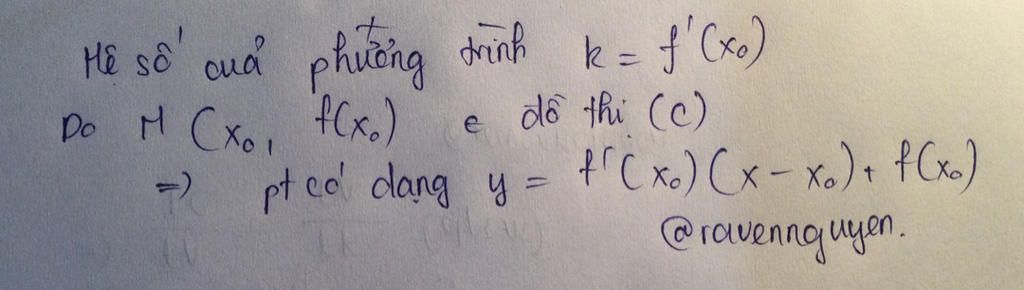 Hệ số của phương trình k = f'(x₀)
Do M (x₀, f(x₀) ∈ đồ thị (C)
=> pt có dạng y = f'(x₀)(x - x₀) + f(x₀)
@ravennguyen.